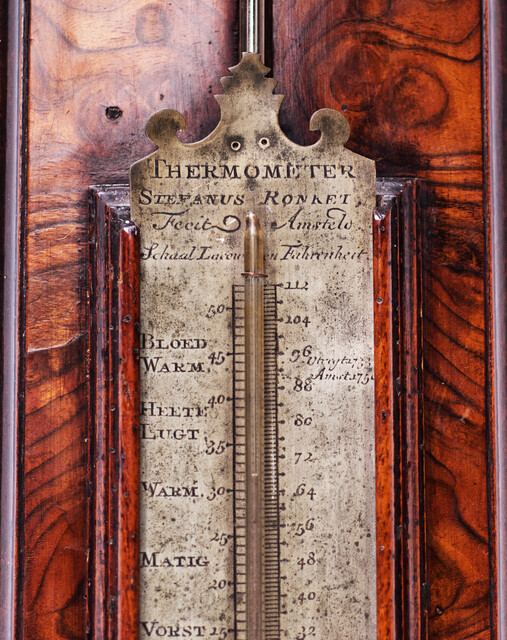 THERMOMETER
STEFANUS RONKET,
Fecit Amstelo
Schaal Fahrenheit
112
50 104
BLOED
WARM 45 96
88
40 80
HEETE
LUGT 35 72
WARM. 30 64
56
25
MATIG 48
20
40
VORST 15 32